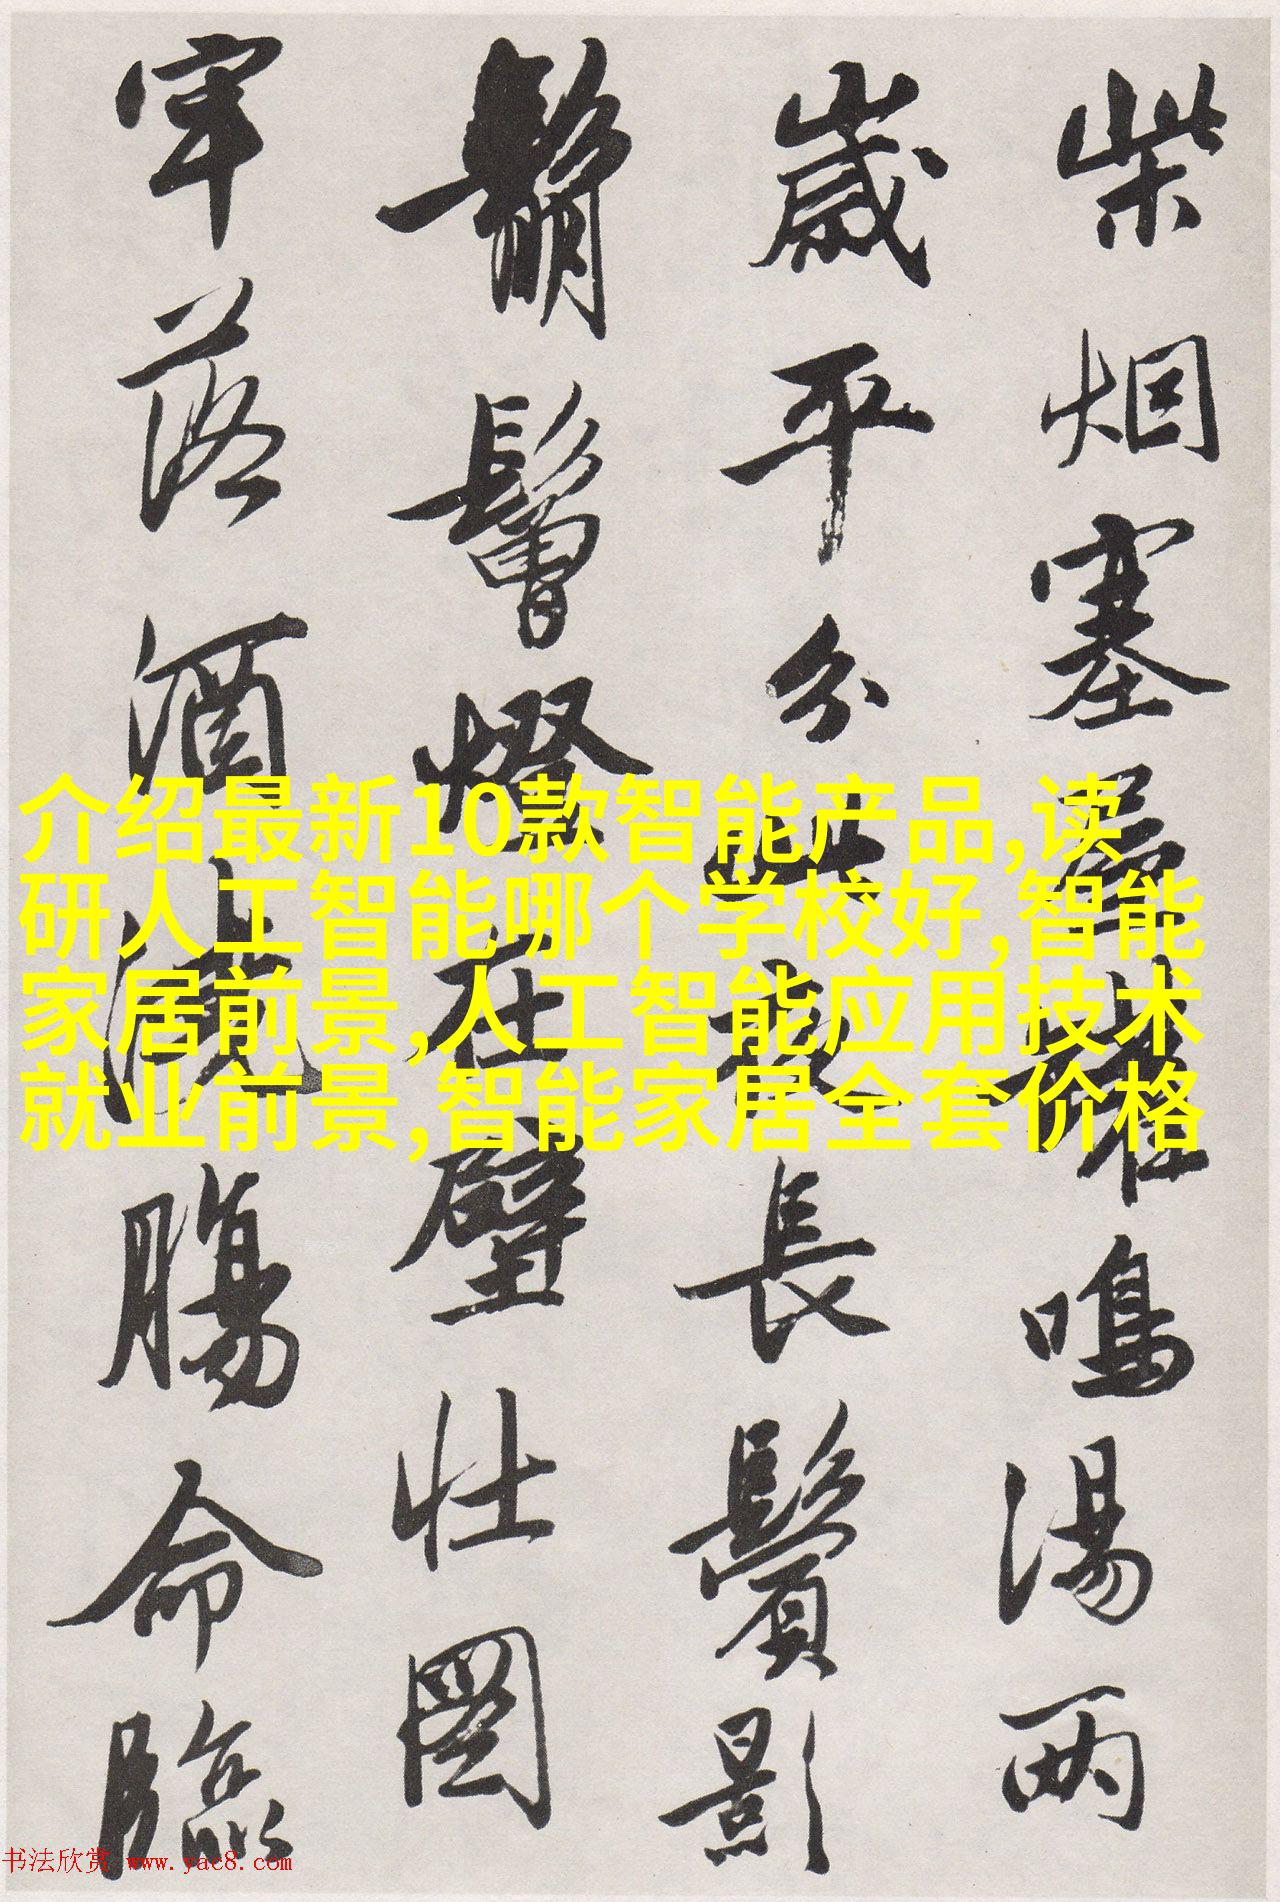 柴烟塞屋罐鳴湯两
歲平分此夜長鬢影
鬅鬙燈在壁壯圖
牢落酒澆腸命臨
介绍最新10款智能产品,读
研人工智能哪个学校好,智能
家居前景,人工智能应用技术
就业前景,智能家居全套价格
书法欣赏 www.yac8.com